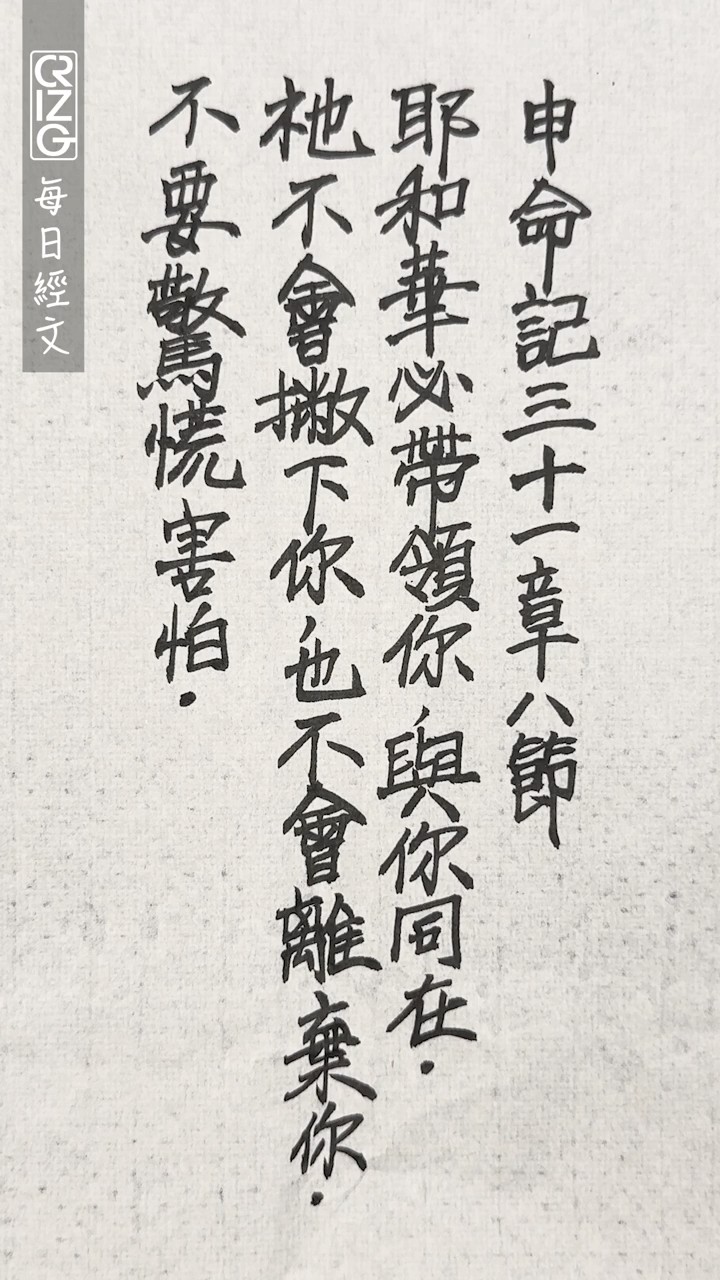 申命記三十一章八節
耶和華必帶領你，與你同在．
祂不會撇下你，也不會離棄你．
不要驚慌害怕．
CRIZG
每日經文